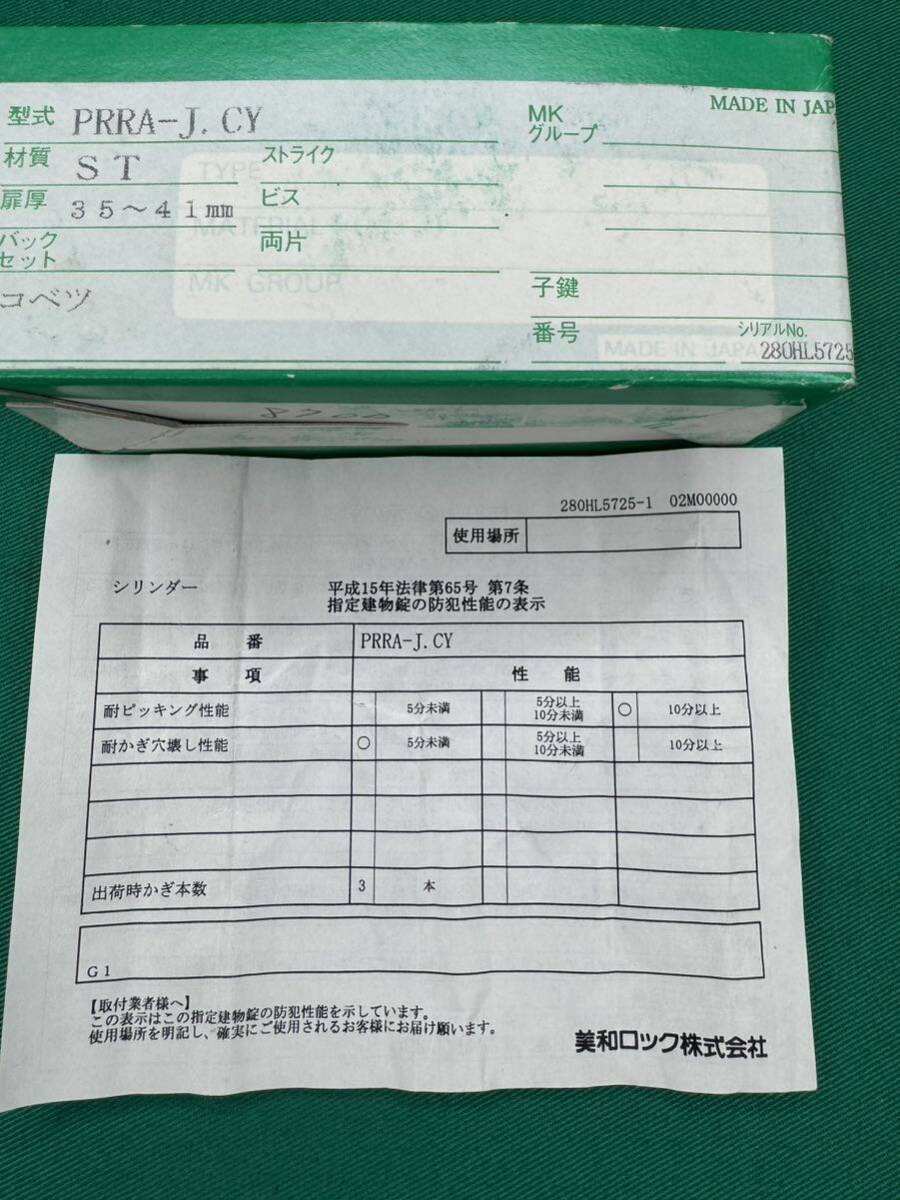 型式 PRRA-J.CY
MK
グループ
MADE IN JAP
材質 ST
ストライク
TYPE
扉厚 35～41mm
ビス
MATERIAL
バック
セット
両片
MK GROUP
コベツ
子鍵
番号
シリアルNo.
280HL5725
MADE IN JAPA
280HL5725-1 02M00000
使用場所
シリンダー
平成15年法律第65号 第7条
指定建物錠の防犯性能の表示
品番 PRRA-J.CY
事項 性能
耐ピッキング性能 5分未満 5分以上 10分未満 ○ 10分以上
耐かぎ穴壊し性能 ○ 5分未満 5分以上 10分未満 10分以上
出荷時かぎ本数 3 本
G1
【取付業者様へ】
この表示はこの指定建物錠の防犯性能を示しています。
使用場所を明記し、確実にご使用されるお客様にお届け願います。
美和ロック株式会社